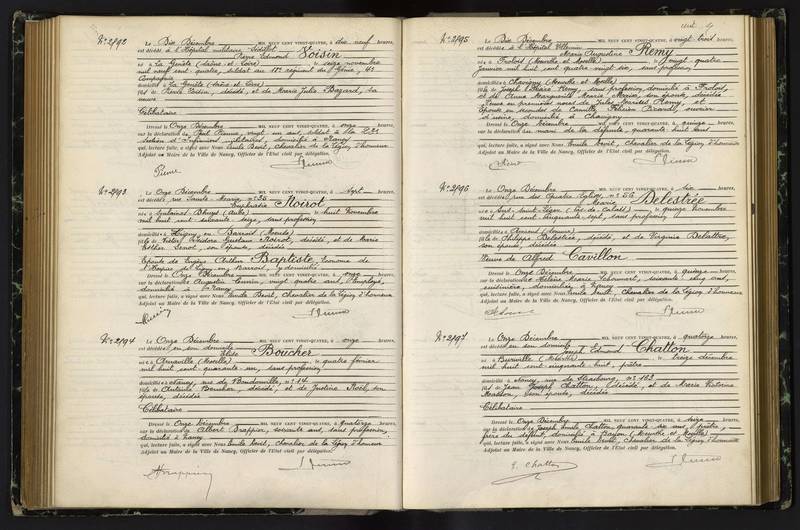 N° 2192
Le Dix Décembre MIL NEUF CENT VINGT-QUATRE, à dix neuf heures,
est décédé à l'Hôpital militaire Sédillot Voisin
Pierre Edmond
né à La Genête (Saône et Loire) le seize novembre
mil neuf cent quatre, soldat au 18e régiment du Génie,
Compagnie
domicilié à La Genête (Saône et Loire)
fils de Voisin, décédé, et de Marie Julie Bazard, sa
veuve
Célibataire
Dressé le Onze Décembre MIL NEUF CENT VINGT-QUATRE, à onze heures,
sur la déclaration de Paul Pierre, vingt un ans, soldat à la
section d'Infirmiers militaires, domicilié à Nancy
qui, lecture faite, a signé avec Nous Emile Chevalier de la Légion d'honneur
Adjoint au Maire de la Ville de Nancy, Officier de l'Etat civil par délégation.
Pierre
N° 2193
Le Onze Décembre MIL NEUF CENT VINGT-QUATRE, à sept heures,
est décédée rue Sainte-Marie, n° Noirot
né à (Aube) le huit Novembre
mil huit cent soixante seize, sans profession
domiciliée à Ligny en Barrois (Meuse)
fille de Isidore Gustave Noirot, décédé, et de Marie
son épouse, décédée
Epouse de Eugène Arthur Baptiste, économe de
l'Hospice de Ligny en Barrois, y domicilié
Dressé le Onze Décembre MIL NEUF CENT VINGT-QUATRE, à onze heures,
sur la déclaration de Augustin vingt quatre ans, employé,
domicilié à Nancy
qui, lecture faite, a signé avec Nous Emile Chevalier de la Légion d'honneur
Adjoint au Maire de la Ville de Nancy, Officier de l'Etat civil par délégation.
N° 2194
Le Onze Décembre MIL NEUF CENT VINGT-QUATRE, à onze heures,
est décédée en son domicile Boucher
née à Arnaville (Moselle) le quatre février
mil huit cent quarante un, sans profession
domiciliée à Nancy, rue de n° 14
fille de Antoine Boucher, décédé, et de Justine Noël, son
épouse, décédée
Célibataire
Dressé le Onze Décembre MIL NEUF CENT VINGT-QUATRE, à Quatorze heures,
sur la déclaration de Albert soixante ans, sans profession,
domicilié à Nancy
qui, lecture faite, a signé avec Nous Emile Chevalier de la Légion d'honneur
Adjoint au Maire de la Ville de Nancy, Officier de l'Etat civil par délégation.
N° 2195
Le Dix Décembre MIL NEUF CENT VINGT-QUATRE, à vingt trois heures,
est décédée à l'Hôpital Villemin Remy
Marie Augustine
née à Frolois (Meurthe et Moselle) le vingt quatre
Janvier mil huit cent quatre vingt six, sans profession
domiciliée à Chavigny (Meurthe et Moselle)
fille de Joseph Remy, sans profession, domicilié à Frolois,
et de Anne Marguerite Marie son épouse, décédée
Veuve en premières noces de Jules Remy, et
Epouse en secondes de Camille ouvrier
d'usine, domicilié à Chavigny
Dressé le Onze Décembre MIL NEUF CENT VINGT-QUATRE, à quinze heures,
sur la déclaration au mari de la défunte, quarante huit ans
qui, lecture faite, a signé avec Nous Emile Chevalier de la Légion d'honneur
Adjoint au Maire de la Ville de Nancy, Officier de l'Etat civil par délégation.
N° 2196
Le Onze Décembre MIL NEUF CENT VINGT-QUATRE, à dix heures,
est décédée rue des Quatre Eglises, n° 56 Delestrée
Marie
née à (Pas-de-Calais) le quinze novembre
mil huit cent cinquante sept, sans profession
domiciliée à Amiens (Somme)
fille de Philippe Delestrée, décédé, et de Virginie
son épouse, décédée
Veuve de Alfred Cavillon
Dressé le Onze Décembre MIL NEUF CENT VINGT-QUATRE, à quinze heures,
sur la déclaration de Hélène Marie soixante cinq ans,
cuisinière, domiciliée à Nancy
qui, lecture faite, a signé avec Nous Emile Chevalier de la Légion d'honneur
Adjoint au Maire de la Ville de Nancy, Officier de l'Etat civil par délégation.
N° 2197
Le Onze Décembre MIL NEUF CENT VINGT-QUATRE, à quatorze heures,
est décédé en son domicile Chatton
Joseph Edmond
né à Buriville (Meurthe) le treize décembre
mil huit cent cinquante huit, prêtre
domicilié à Nancy, rue de Strasbourg, n° 162
fils de Jean Joseph Chatton, décédé, et de Marie Victorine
son épouse, décédée
Célibataire
Dressé le Onze Décembre MIL NEUF CENT VINGT-QUATRE, à seize heures,
sur la déclaration de Joseph Emile Chatton, quarante ans, prêtre,
frère du défunt, domicilié à Bayon (Meurthe et Moselle)
qui, lecture faite, a signé avec Nous Emile Chevalier de la Légion d'honneur
Adjoint au Maire de la Ville de Nancy, Officier de l'Etat civil par délégation.
E. Chatton